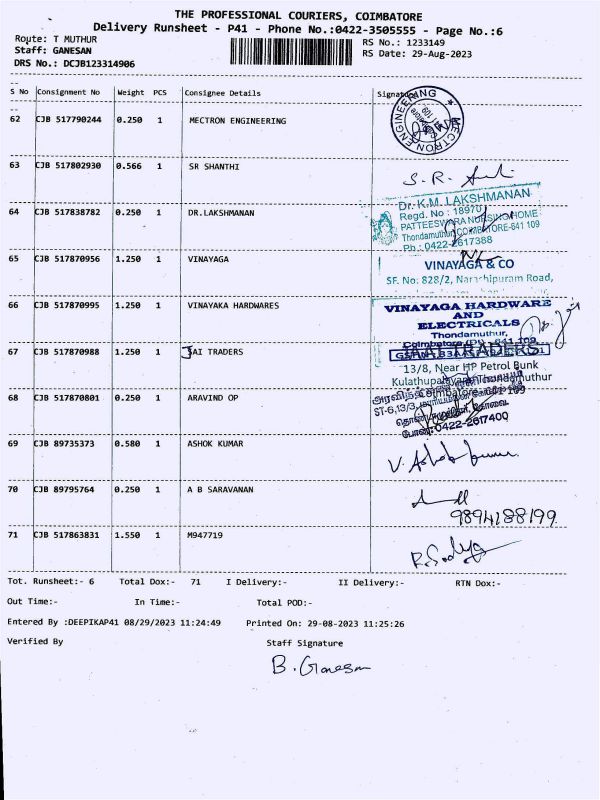 THE PROFESSIONAL COURIERS, COIMBATORE
Delivery Runsheet - P41 - Phone No.:0422-3505555 - Page No.:6
Route: T MUTHUR
RS No.: 1233149
Staff: GANESAN
RS Date: 29-Aug-2023
DRS No.: DCJB123314906
S No Consignment No Weight PCS Consignee Details Signature
62 CJB 517790244 0.250 1 MECTRON ENGINEERING
MECTRON ENGINEERING
63 CJB 517802930 0.566 1 SR SHANTHI
S. R.
Dr. K.M. LAKSHMANAN
Regd. No : 18970
64 CJB 517838782 0.250 1 DR.LAKSHMANAN
PATTEESWARA NURSING HOME
Thondamuthur, COIMBATORE-641 109
Ph : 0422-2617388
65 CJB 517870956 1.250 1 VINAYAGA
VINAYAGA & CO
SF. No: 828/2, Narashipuram Road,
66 CJB 517870995 1.250 1 VINAYAKA HARDWARES
VINAYAGA HARDWARE
AND
ELECTRICALS
Thondamuthur,
67 CJB 517870988 1.250 1 JAI TRADERS
TRADERS
13/8, Near HP Petrol Bunk
Kulathupalayam Thondamuthur
Coimbatore - 641 109
68 CJB 517870801 0.250 1 ARAVIND OP
ST-6,13/3,
0422-2617400
69 CJB 89735373 0.580 1 ASHOK KUMAR
V. Ashok kumar
70 CJB 89795764 0.250 1 A B SARAVANAN
9894188199
71 CJB 517863831 1.550 1 M947719
Tot. Runsheet:- 6 Total Dox:- 71 I Delivery:- II Delivery:- RTN Dox:-
Out Time:- In Time:- Total POD:-
Entered By :DEEPIKAP41 08/29/2023 11:24:49 Printed On: 29-08-2023 11:25:26
Verified By Staff Signature
B. Ganesan